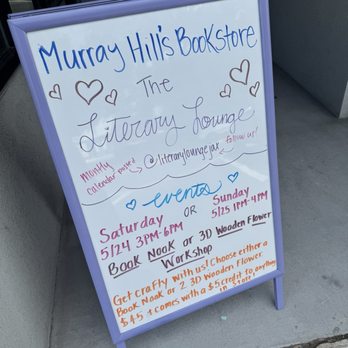 Murray Hill's Bookstore
The
Literary Lounge
monthly calendar posted → @literaryloungejax
follow us!
events
Saturday
5/24 3PM-6PM
OR
Sunday
5/25 1PM-4PM
Book Nook or 3D Wooden Flower
Workshop
Get crafty with us! Choose either a
Book Nook or 2 3D Wooden Flower.
$45 & comes with a $5 credit to anything
in store!